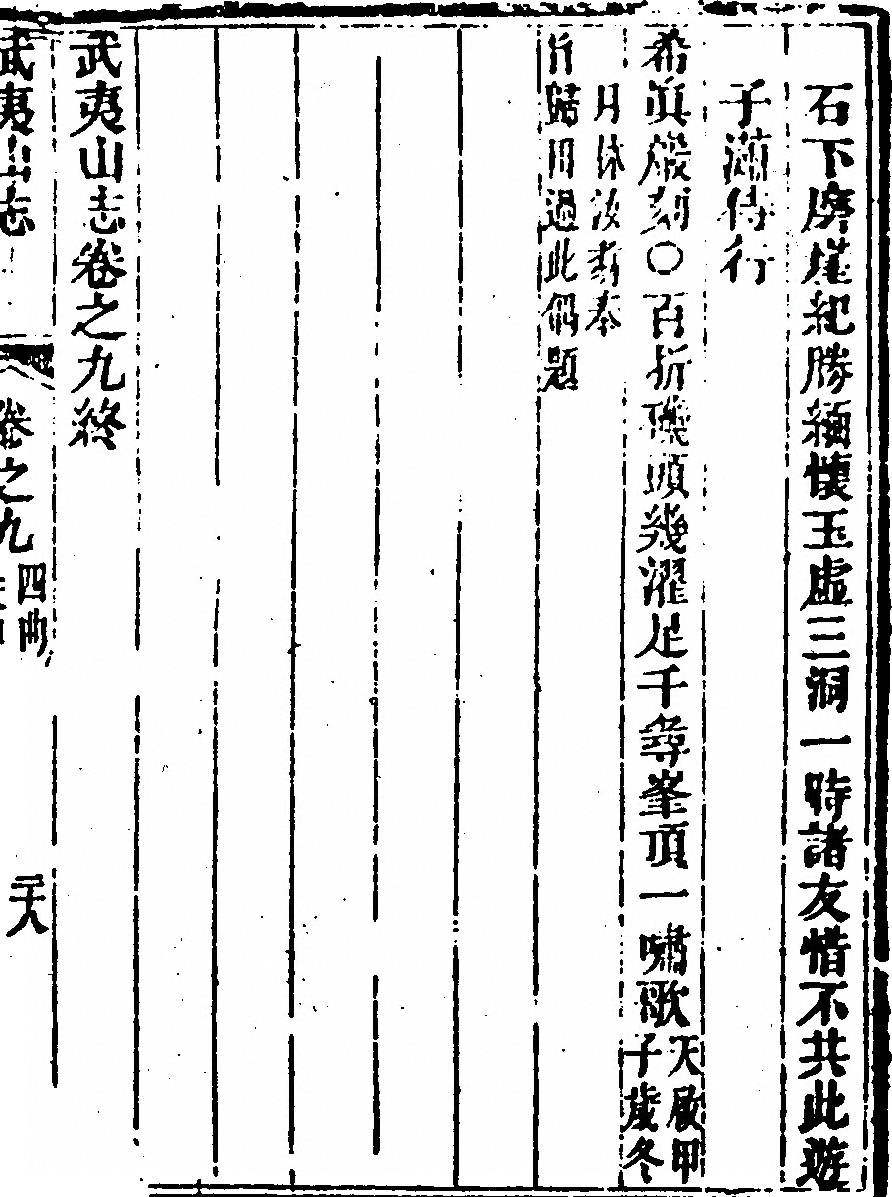 石下磨崖紀勝緬懷玉虛三洞一時諸友惜不共此遊
子瀟侍行
希眞 刻○百折磯頭幾濯足千尋峯頂一嘯歌天啟甲
子歲冬
月休汝 奉
旨歸田過此偶題
武夷山志卷之九終
武夷山志 卷之九 四曲 二十八